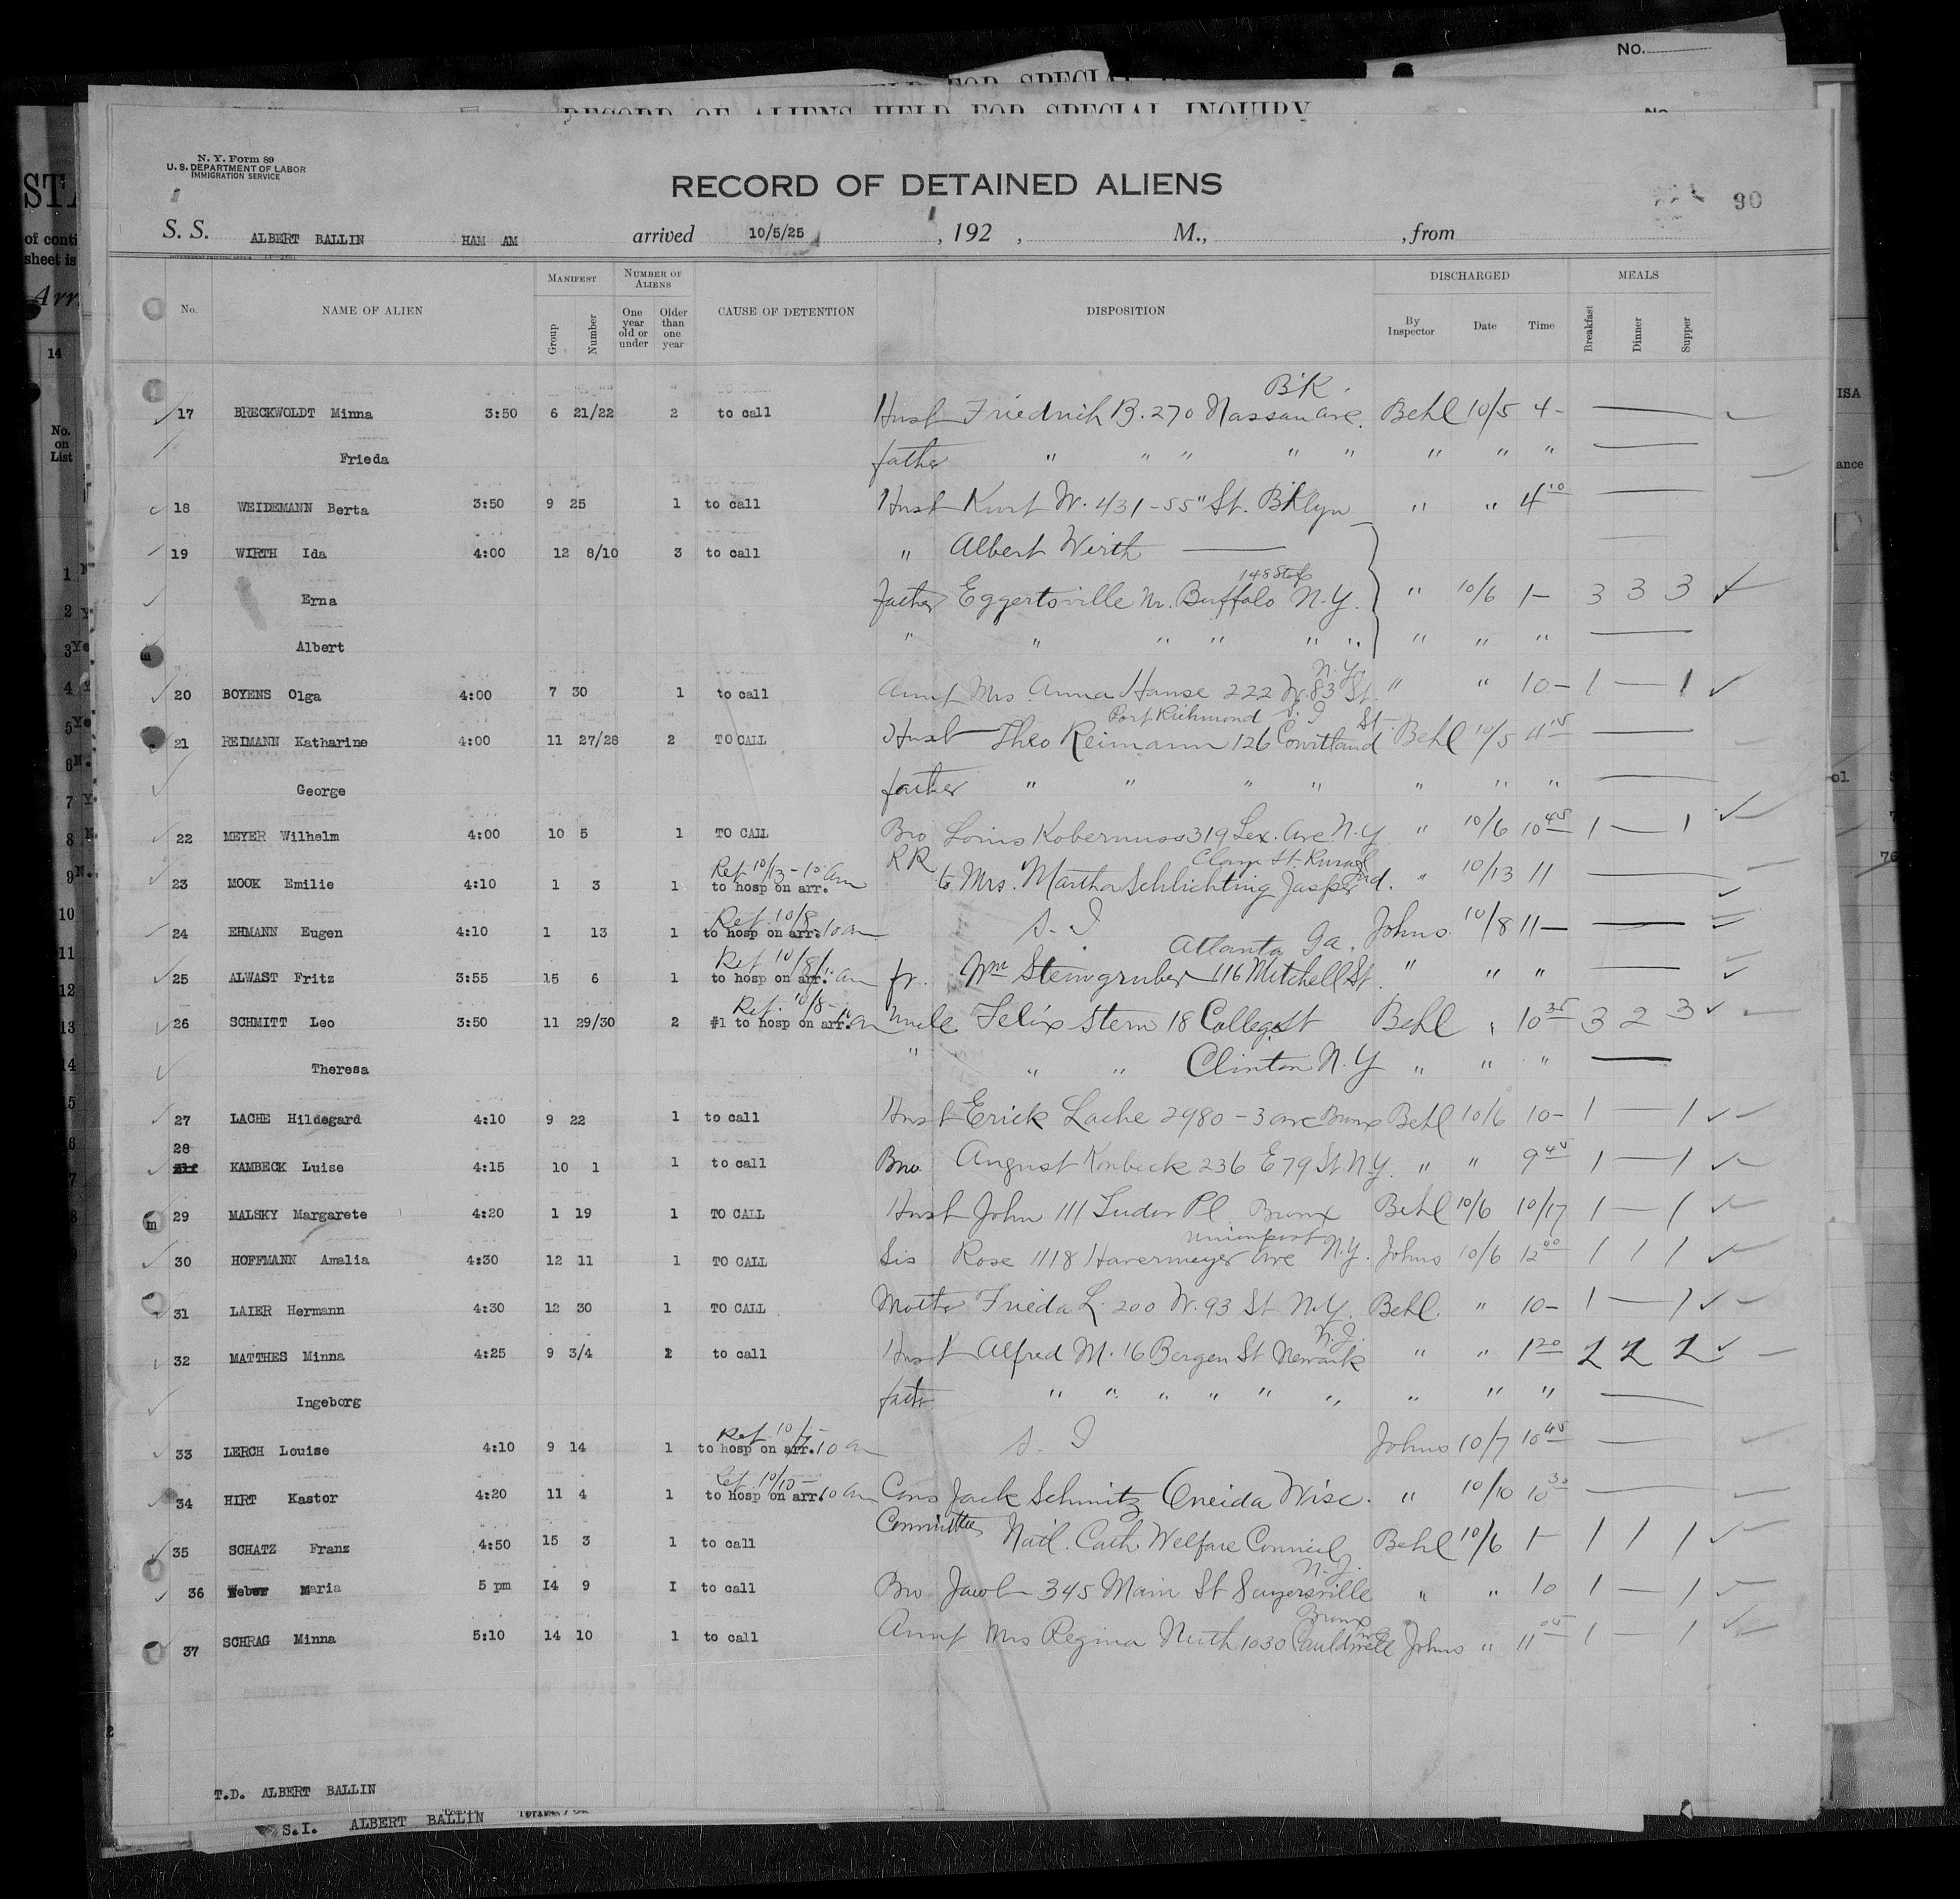 No.
RECORD OF ALIENS HELD FOR SPECIAL INQUIRY
N. Y. Form 89
U. S. DEPARTMENT OF LABOR
IMMIGRATION SERVICE
RECORD OF DETAINED ALIENS
30
S. S. ALBERT BALLIN HAM AM arrived 10/5/25, 192 , M., , from
No. NAME OF ALIEN MANIFEST Group Number NUMBER OF ALIENS One year old or under Older than one year CAUSE OF DETENTION DISPOSITION DISCHARGED By Inspector Date Time MEALS Breakfast Dinner Supper
B'K.
17 BRECKWOLDT Minna 3:50 6 21/22 2 to call Husb Friedrich B. 270 Nassau ave. Behl 10/5 4 —
Frieda father " " " " " " " "
18 WEIDEMANN Berta 3:50 9 25 1 to call Husb Kurt W. 431 - 55" St. B'klyn " " 4 10
19 WIRTH Ida 4:00 12 8/10 3 to call " Albert Wirth —
Erna Father Eggertsville Nr. Buffalo N.Y. " 10/6 1— 3 3 3
Albert " " " " " " " " "
N.Y.
20 BOYENS Olga 4:00 7 30 1 to call Aunt Mrs. Anna Hanse 222 W. 83 St. " " 10— 1 — 1
Port Richmond S. I St
21 REIMANN Katharine 4:00 11 27/28 2 TO CALL Husb Theo Reimann 126 Courtland Behl 10/5 4 15
George father " " " " " " "
22 MEYER Wilhelm 4:00 10 5 1 TO CALL Bro Louis Kobernuss 319 Lex. Ave. N.Y. " 10/6 10 45 1 — 1
Ret 10/13 - 10 am RR
23 MOOK Emilie 4:10 1 3 1 to hosp on arr. to Mrs. Martha Schlichting Jasper Ind. " 10/13 11
Ret. 10/8
24 EHMANN Eugen 4:10 1 13 1 to hosp on arr. 10 am S. I Johns 10/8 11—
Ret 10/8 Atlanta Ga.
25 ALWAST Fritz 3:55 15 6 1 to hosp on arr. am fr. Wm Steingruber 116 Mitchell St. " " "
Ret. 10/8-
26 SCHMITT Leo 3:50 11 29/30 2 #1 to hosp on arr. Uncle Felix Stern 18 College St Behl " 10 35 3 2 3
Theresa " " " Clinton N.Y " " "
27 LACHE Hildegard 4:10 9 22 1 to call Husb Erick Lache 2980 - 3 ave Bronx Behl 10/6 10— 1 — 1
28 KAMBECK Luise 4:15 10 1 1 to call Bro August Konbeck 236 E 79 St. N.Y. " " 9 45 1 — 1
29 MALSKY Margarete 4:20 1 19 1 TO CALL Husb John 111 Tudor Pl Bronx Behl 10/6 10/17 1 — 1
Unionport
30 HOFFMANN Amalia 4:30 12 11 1 TO CALL Sis Rose 1118 Havermeyer Ave N.Y. Johns 10/6 12 40 1 1 1
31 LAIER Hermann 4:30 12 30 1 TO CALL Mother Frieda L. 200 W. 93 St N.Y. Behl. " 10— 1 — 1
N.J.
32 MATTHES Minna 4:25 9 3/4 2 to call Husb Alfred M. 16 Bergen St Newark " " 1 20 2 2 2
Ingeborg fathr " " " " " " " " "
Ret. 10/7-
33 LERCH Louise 4:10 9 14 1 to hosp on arr. 10 am S. I Johns 10/7 10 45
Ret 10/10 —
34 HIRT Kastor 4:20 11 4 1 to hosp on arr. 10 am Cons Jack Schmitz Oneida Wisc. " 10/10 10 30
Committee
35 SCHATZ Franz 4:50 15 3 1 to call Natl. Cath. Welfare Council Behl 10/6 1— 1 1 1
N.J.
36 Weber Maria 5 pm I4 9 I to call Bro Jacob 345 Main St Sayersville " " 10 1 — 1
Bronx
37 SCHRAG Minna 5:10 14 10 1 to call Aunt Mrs Regina Muth 1030 Cauldwell Johns " 11 05 1 — 1
T.D. ALBERT BALLIN
S.I. ALBERT BALLIN